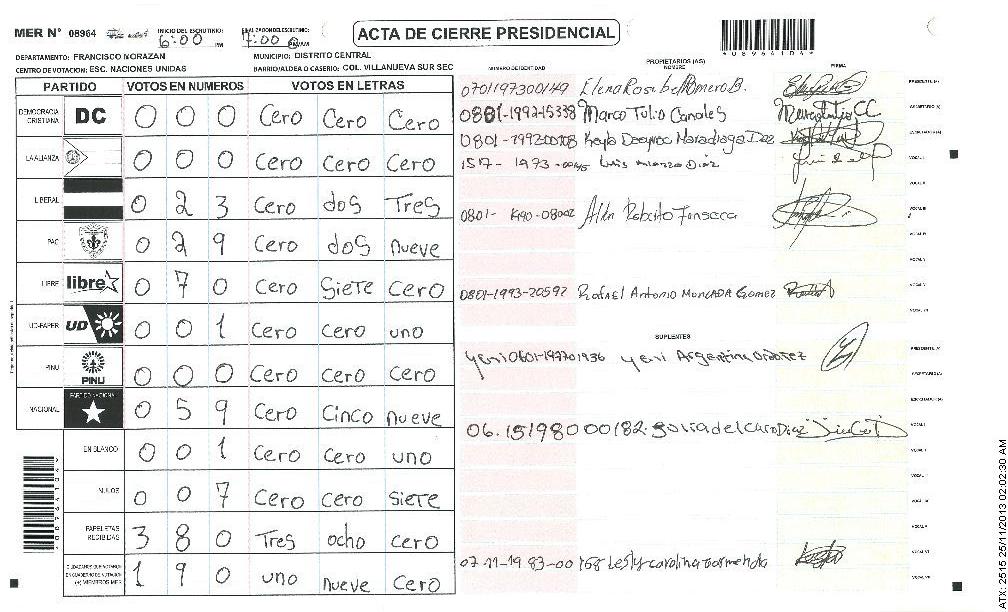 MER N° 08964 INICIO DEL ESCRUTINIO: 6:00 PM 7:00 PM/AM
ACTA DE CIERRE PRESIDENCIAL
*08964104*
DEPARTAMENTO: FRANCISCO MORAZAN MUNICIPIO: DISTRITO CENTRAL
CENTRO DE VOTACION: ESC. NACIONES UNIDAS BARRIO/ALDEA O CASERIO: COL. VILLANUEVA SUR SEC
PARTIDO VOTOS EN NUMEROS VOTOS EN LETRAS
DEMOCRACIA CRISTIANA DC 0 0 0 Cero Cero Cero
LA ALIANZA 0 0 0 Cero Cero Cero
LIBERAL 0 2 3 Cero dos Tres
PAC 0 2 9 Cero dos nueve
LIBRE libre 0 7 0 Cero Siete Cero
UD-FAPER UD 0 0 1 Cero Cero uno
PINU PINU 0 0 0 Cero Cero Cero
NACIONAL PARTIDO NACIONAL 0 5 9 Cero Cinco nueve
EN BLANCO 0 0 1 Cero Cero uno
NULOS 0 0 7 Cero Cero Siete
PAPELETAS RECIBIDAS 3 8 0 Tres ocho Cero
CIUDADANOS QUE VOTARON EN CUADERNO DE VOTACION (+) MIEMBROS MER 1 9 0 uno nueve Cero
NUMERO DE IDENTIDAD PROPIETARIOS (AS) NOMBRE FIRMA
0701197300149 Elena Rosibel Romero B. PRESIDENTE (A)
0881-1992-15338 Marco Tulio Canales SECRETARIO (A)
0801-199200108 Keyla
1517-1973- Luis Alonzo Diaz VOCAL I
0801-1990-08002 Roberto Fonseca VOCAL III
0801-1993-20592 Rafael Antonio MONCADA Gomez VOCAL V
SUPLENTES
Yeni 0601-197701936 Yeni Argentina Ordoñez PRESIDENTE (A)
SECRETARIO (A)
06.15198000182
07-11-1983-00168 Lesly carolina
ATX: 2515 25/11/2013 02:02:30 AM